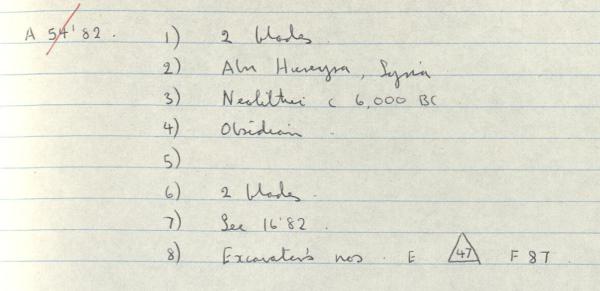 A 54'82. 1) 2 blades.
2) Abu Hureyra, Syria
3) Neolithic c 6,000 BC
4) Obsidian.
5)
6) 2 blades.
7) See 16'82.
8) Excavator's nos. E 47 F 87.